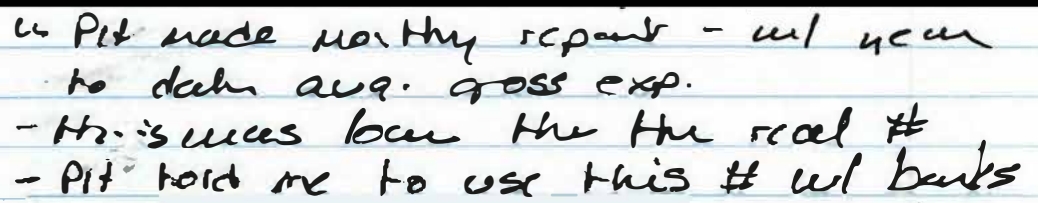 ↳ Pit made monthly report - w/ year
to date avg. gross exp.
- this was low the the real #
- Pit told me to use this # w/ banks